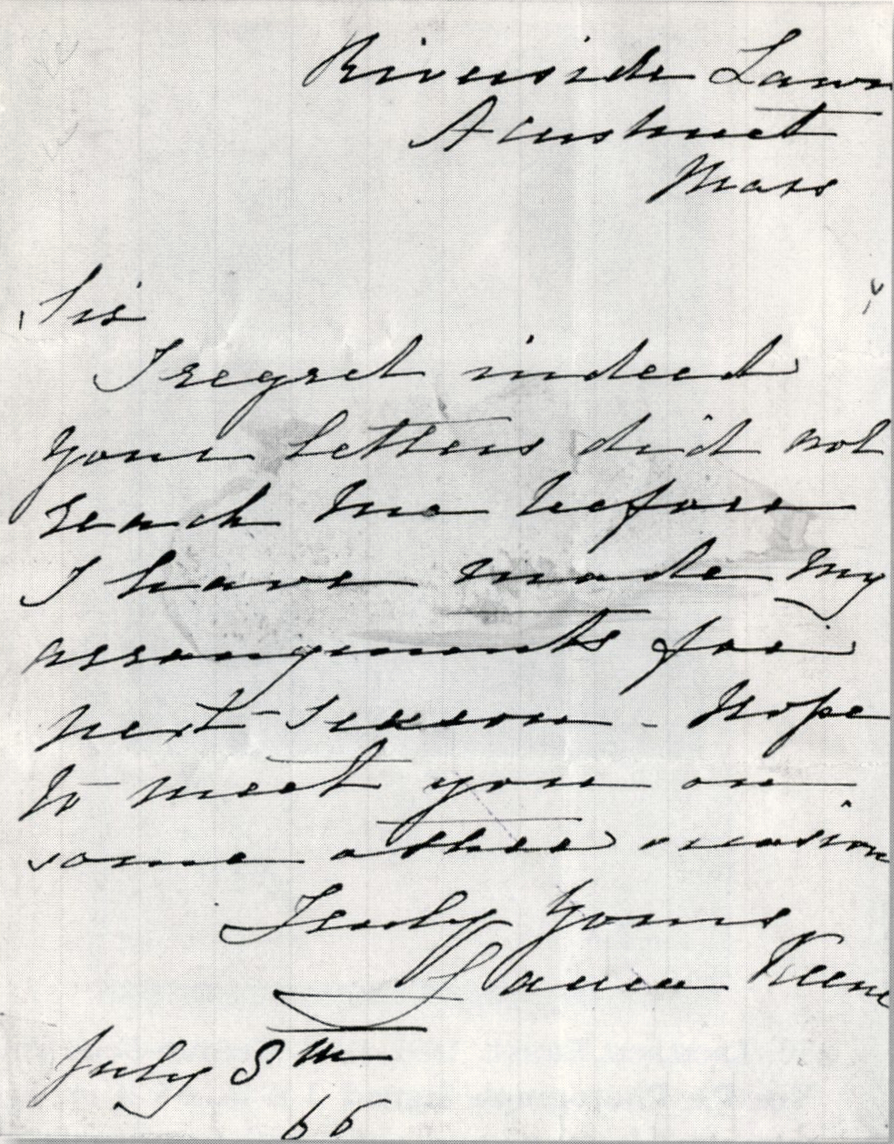 Riverside Lawn
Acushnet
Mass
Sir
I regret indeed
your letters did not
reach me before
I have made my
arrangements for
next season - Hope
to meet you on
some other occasion
Truly Yours
Laura Keene
July 8th
65